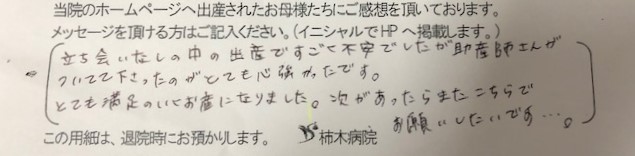 当院のホームページへ出産されたお母様たちにご感想を頂いております。
メッセージを頂ける方はご記入ください。(イニシャルでHPへ掲載します。)
立ち会いなしの中の出産ですごく不安でしたが助産師さんが
ついてて下さったのがとても心強かったです。
とても満足のいくお産になりました。次があったらまたこちらで
お願いしたいです…。
この用紙は、退院時にお預かりします。 柿木病院